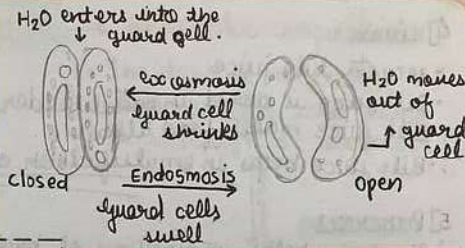 H₂O enters into the
guard gell.
Exc osmosis
guard cell
shrinks
H₂O moves
out of
guard
cell
closed
Endosmosis
guard cells
swell
open